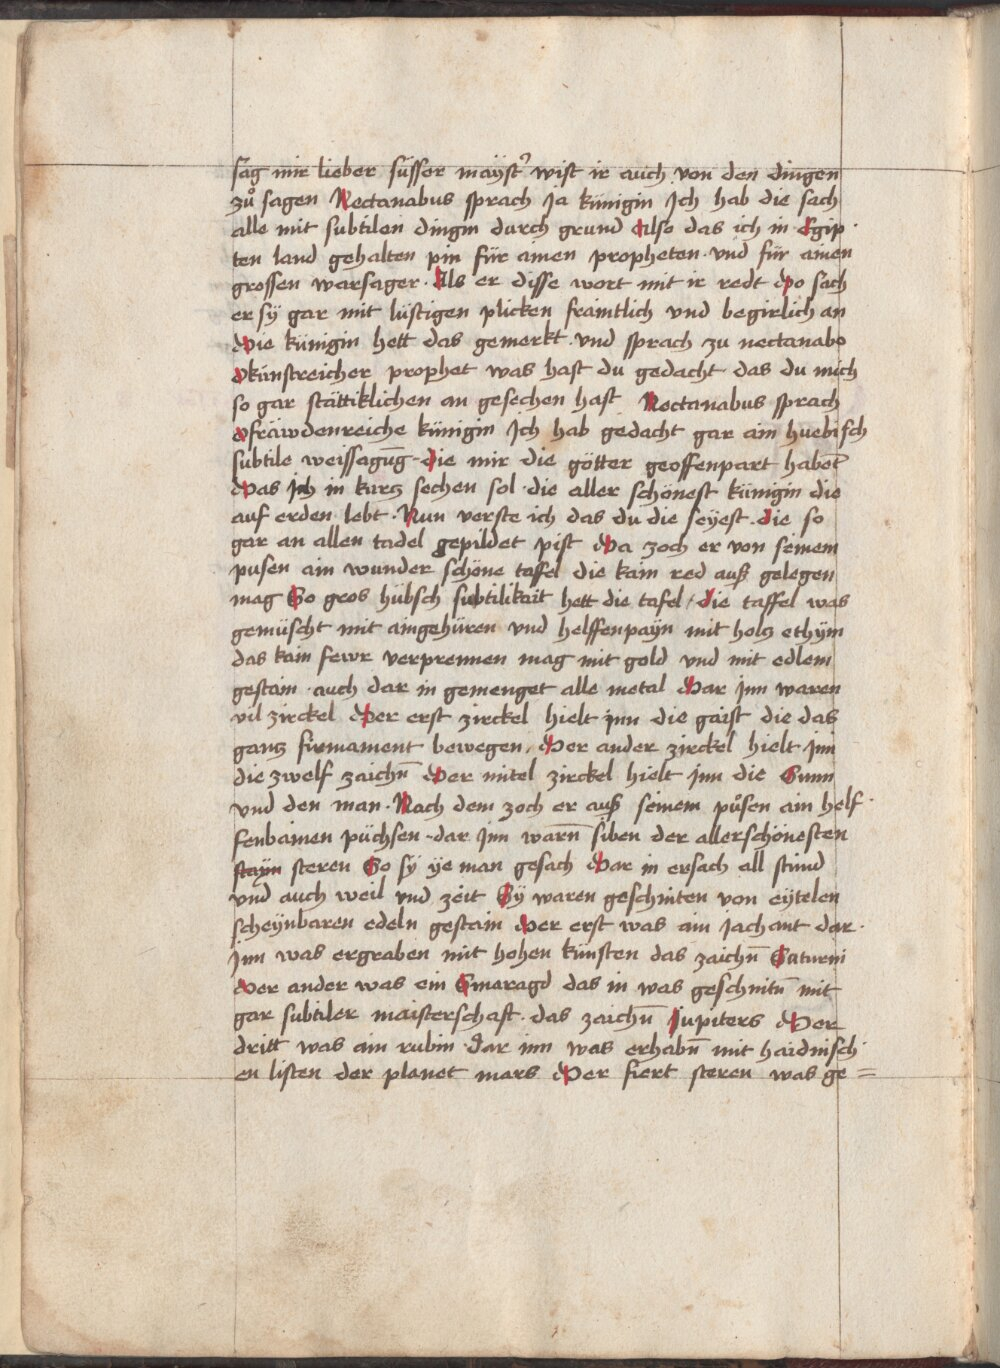 sag mir lieber susser maÿst᷒ wist ir auch von den dingen
zů sagen Nectanabus sprach Ja künigin Ich hab die sach
alle mit subtilen dingen durch grund Also das ich in Egip·
ten land gehalten pin für ainen propheten· vnd für ainen
grossen warsager· Als er disse wort mit ir redt Do sach
er sÿ gar mit lüstigen plicken fraintlich vnd begirlich an
Die künigin hett das gemerkt· vnd sprach zu nectanabo
O künstreicher prophet was hast du gedacht das du mich
so gar stättiklichen an gesechen hast Nectanabus sprach
O fräwdenreiche künigin Ich hab gedacht gar ain huebisch
subtile weissagūg· die mir die götter geoffenpart habēt
Das Ich in kurcz sechen sol· die aller schönest künigin die
auf erden lebt· Nun verste ich das du die seÿest· die so
gar an allen tadel gepildet pist Da zoch er von seinem
pusen ain wunder schöne taffel die kain red auß gelegen
mag So gros hübsch subtilikait hett die tafel / die taffel was
gemüscht mit aingehüren vnd helffenpaÿn mit holcz ethÿm
das kain fewr verprennen mag mit gold vnd mit edlem
gestain· auch dar in gemenget alle metal Dar Jnn waren
vil zirckel Der erst zirckel hielt jnn die gaist die das
gancz firmament bewegen· Der ander zirckel hielt Jnn
die zwelf zaichn̄ Der mitel zirckel hielt Jnn die Sunn
vnd den man· Nach dem zoch er auß seinem půsen ain helf·
fenbainen püchsen· dar Jnn warn̄ siben der allerschönesten
staÿn steren So sÿ ÿe man gesach Dar in ersach all stund
vnd auch weil vnd zeit Sÿ waren geschniten von eÿtelen
scheÿnbaren edeln gestain Der erst was ain Jachant dar·
Jnn was ergraben mit hohen künsten das zaichn̄ Saturni
Der ander was ein Smaragd das in was geschnitn̄ mit
gar subtiler maisterschaft· das zaichn̄ Jupiters Der
dritt was ain rubin· Dar inn was erhabn̄ mit haidnisch·
en listen der planet mars Der fiert steren was ge=